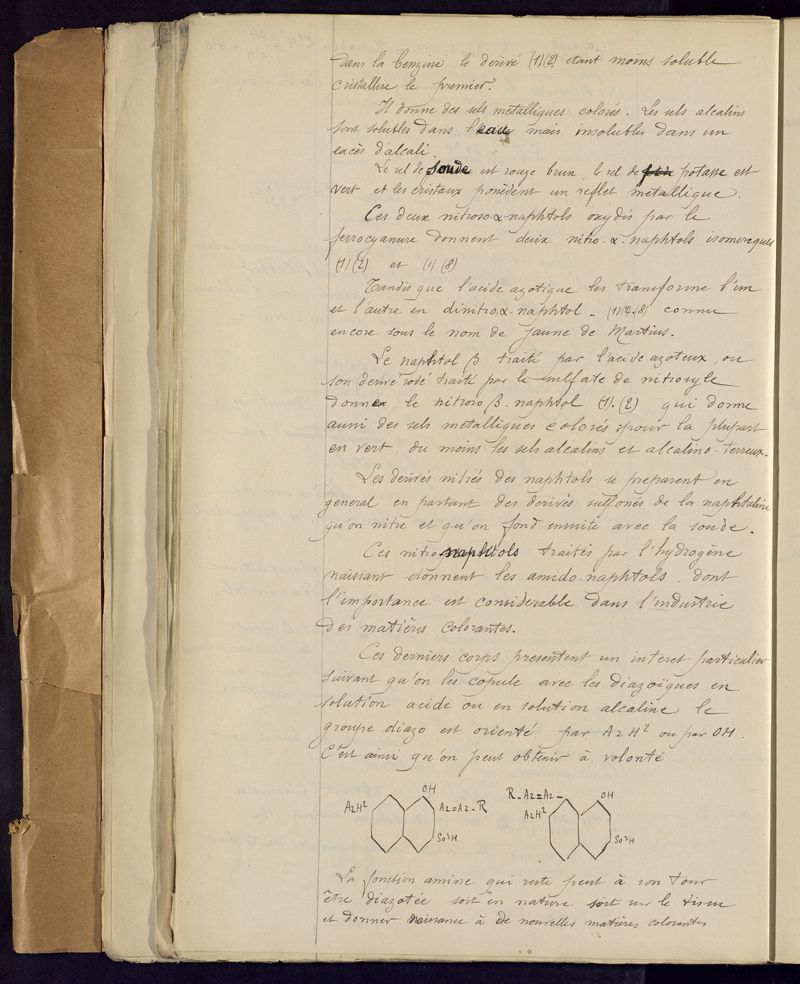 dans la benzine le derivé (1)(2) etant moins soluble
cristallise le premier.
Il donne des sels metalliques colorés. Les sels alcalins
sont solubles dans l'eau mais insolubles dans un
excès d'alcali.
Le sel de soude est rouge brun, le sel de potasse est
vert et les cristaux possèdent un reflet métallique.
Ces deux nitroso α-naphtols oxydés par le
ferrocyanure donnent deux nitro-α-naphtols isomeriques
(1)(2) et (1)(8)
Tandis que l'acide azotique les transforme l'un
et l'autre en dinitro α-naphtol - connu
encore sous le nom de jaune de Martius.
Le naphtol β traité par l'acide azoteux, ou
son derivé sodé traité par le sulfate de nitrosyle
donne le nitroso β-naphtol (1).(2) qui donne
aussi des sels metalliques colorés pour la plupart
en vert, du moins les sels alcalins et alcalino-terreux.
Les derivés nitrés des naphtols se preparent en
general en partant des derivés sulfonés de la naphtaline
qu'on nitre et qu'on fond ensuite avec la soude.
Ces nitronaphtols traités par l'hydrogène
naissant donnent les amido-naphtols, dont
l'importance est considerable dans l'industrie
des matières colorantes.
Ces derniers corps presentent un interet particulier
suivant qu'on les copule avec les diazoïques en
solution acide ou en solution alcaline le
groupe diazo est orienté par AzH² ou par OH.
C'est ainsi qu'on peut obtenir à volonté
AzH² OH Az=Az-R So³H
R-Az=Az- AzH² OH So³H
La fonction amine qui reste peut à son tour
être diazotée soit en nature soit sur le tissu
et donner naissance à de nouvelles matières colorantes